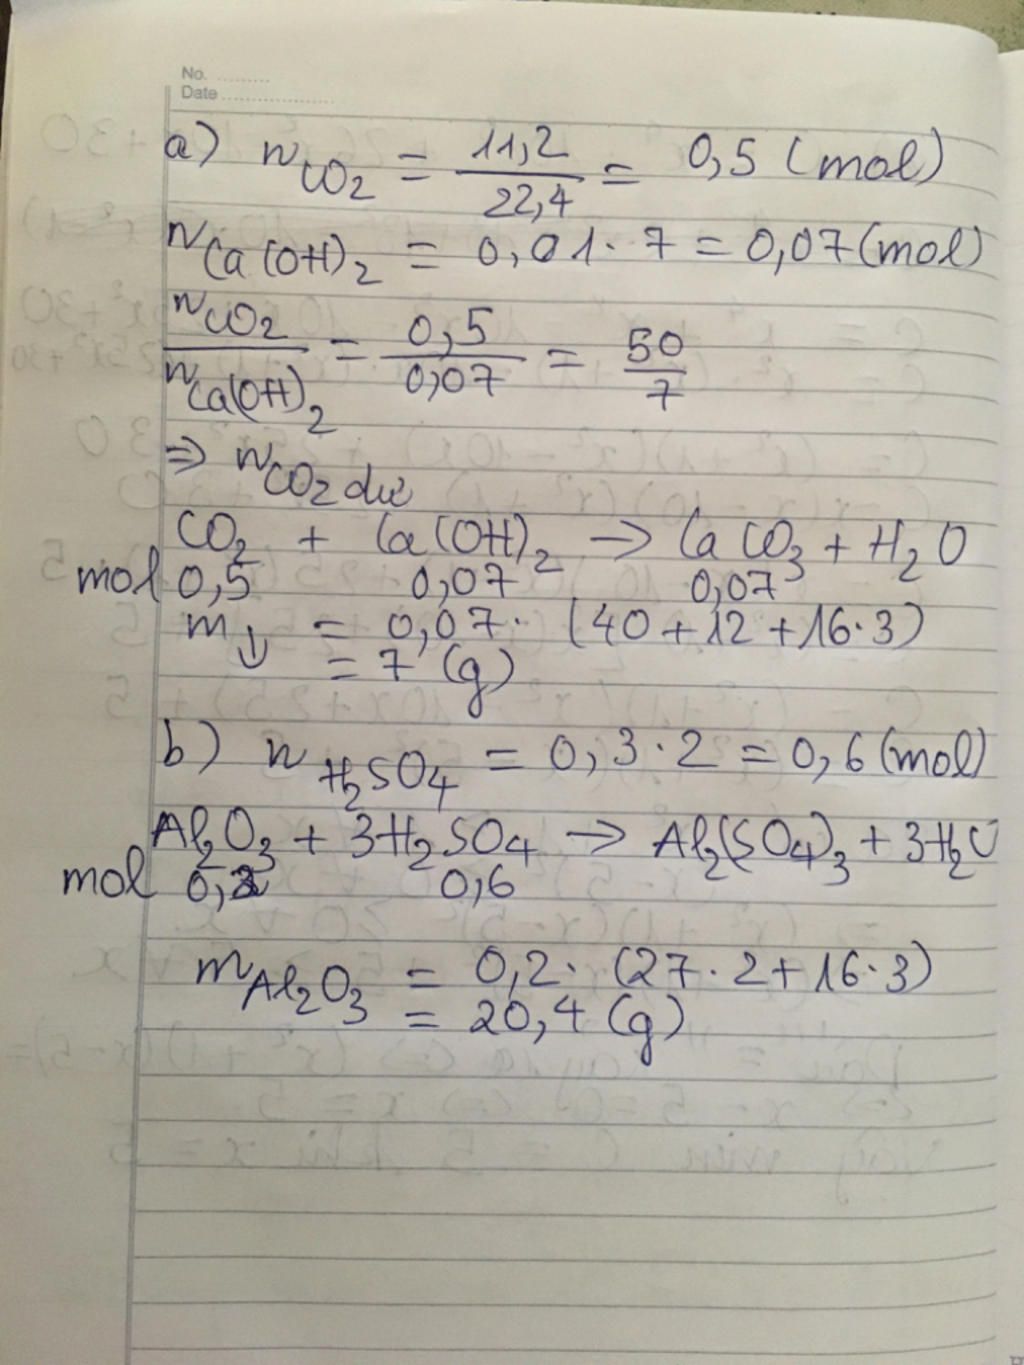 No. ..........
Date ....................
a) nCO2 = 11,2/22,4 = 0,5 (mol)
nCa(OH)2 = 0,01 · 7 = 0,07 (mol)
nCO2/nCa(OH)2 = 0,5/0,07 = 50/7
⇒ nCO2 dư
CO2 + Ca(OH)2 → CaCO3 + H2O
mol 0,5 0,07 0,07
m↓ = 0,07 · (40 + 12 + 16·3)
= 7 (g)
b) nH2SO4 = 0,3 · 2 = 0,6 (mol)
Al2O3 + 3H2SO4 → Al2(SO4)3 + 3H2O
mol 0,2 0,6
mAl2O3 = 0,2 · (27·2 + 16·3)
= 20,4 (g)